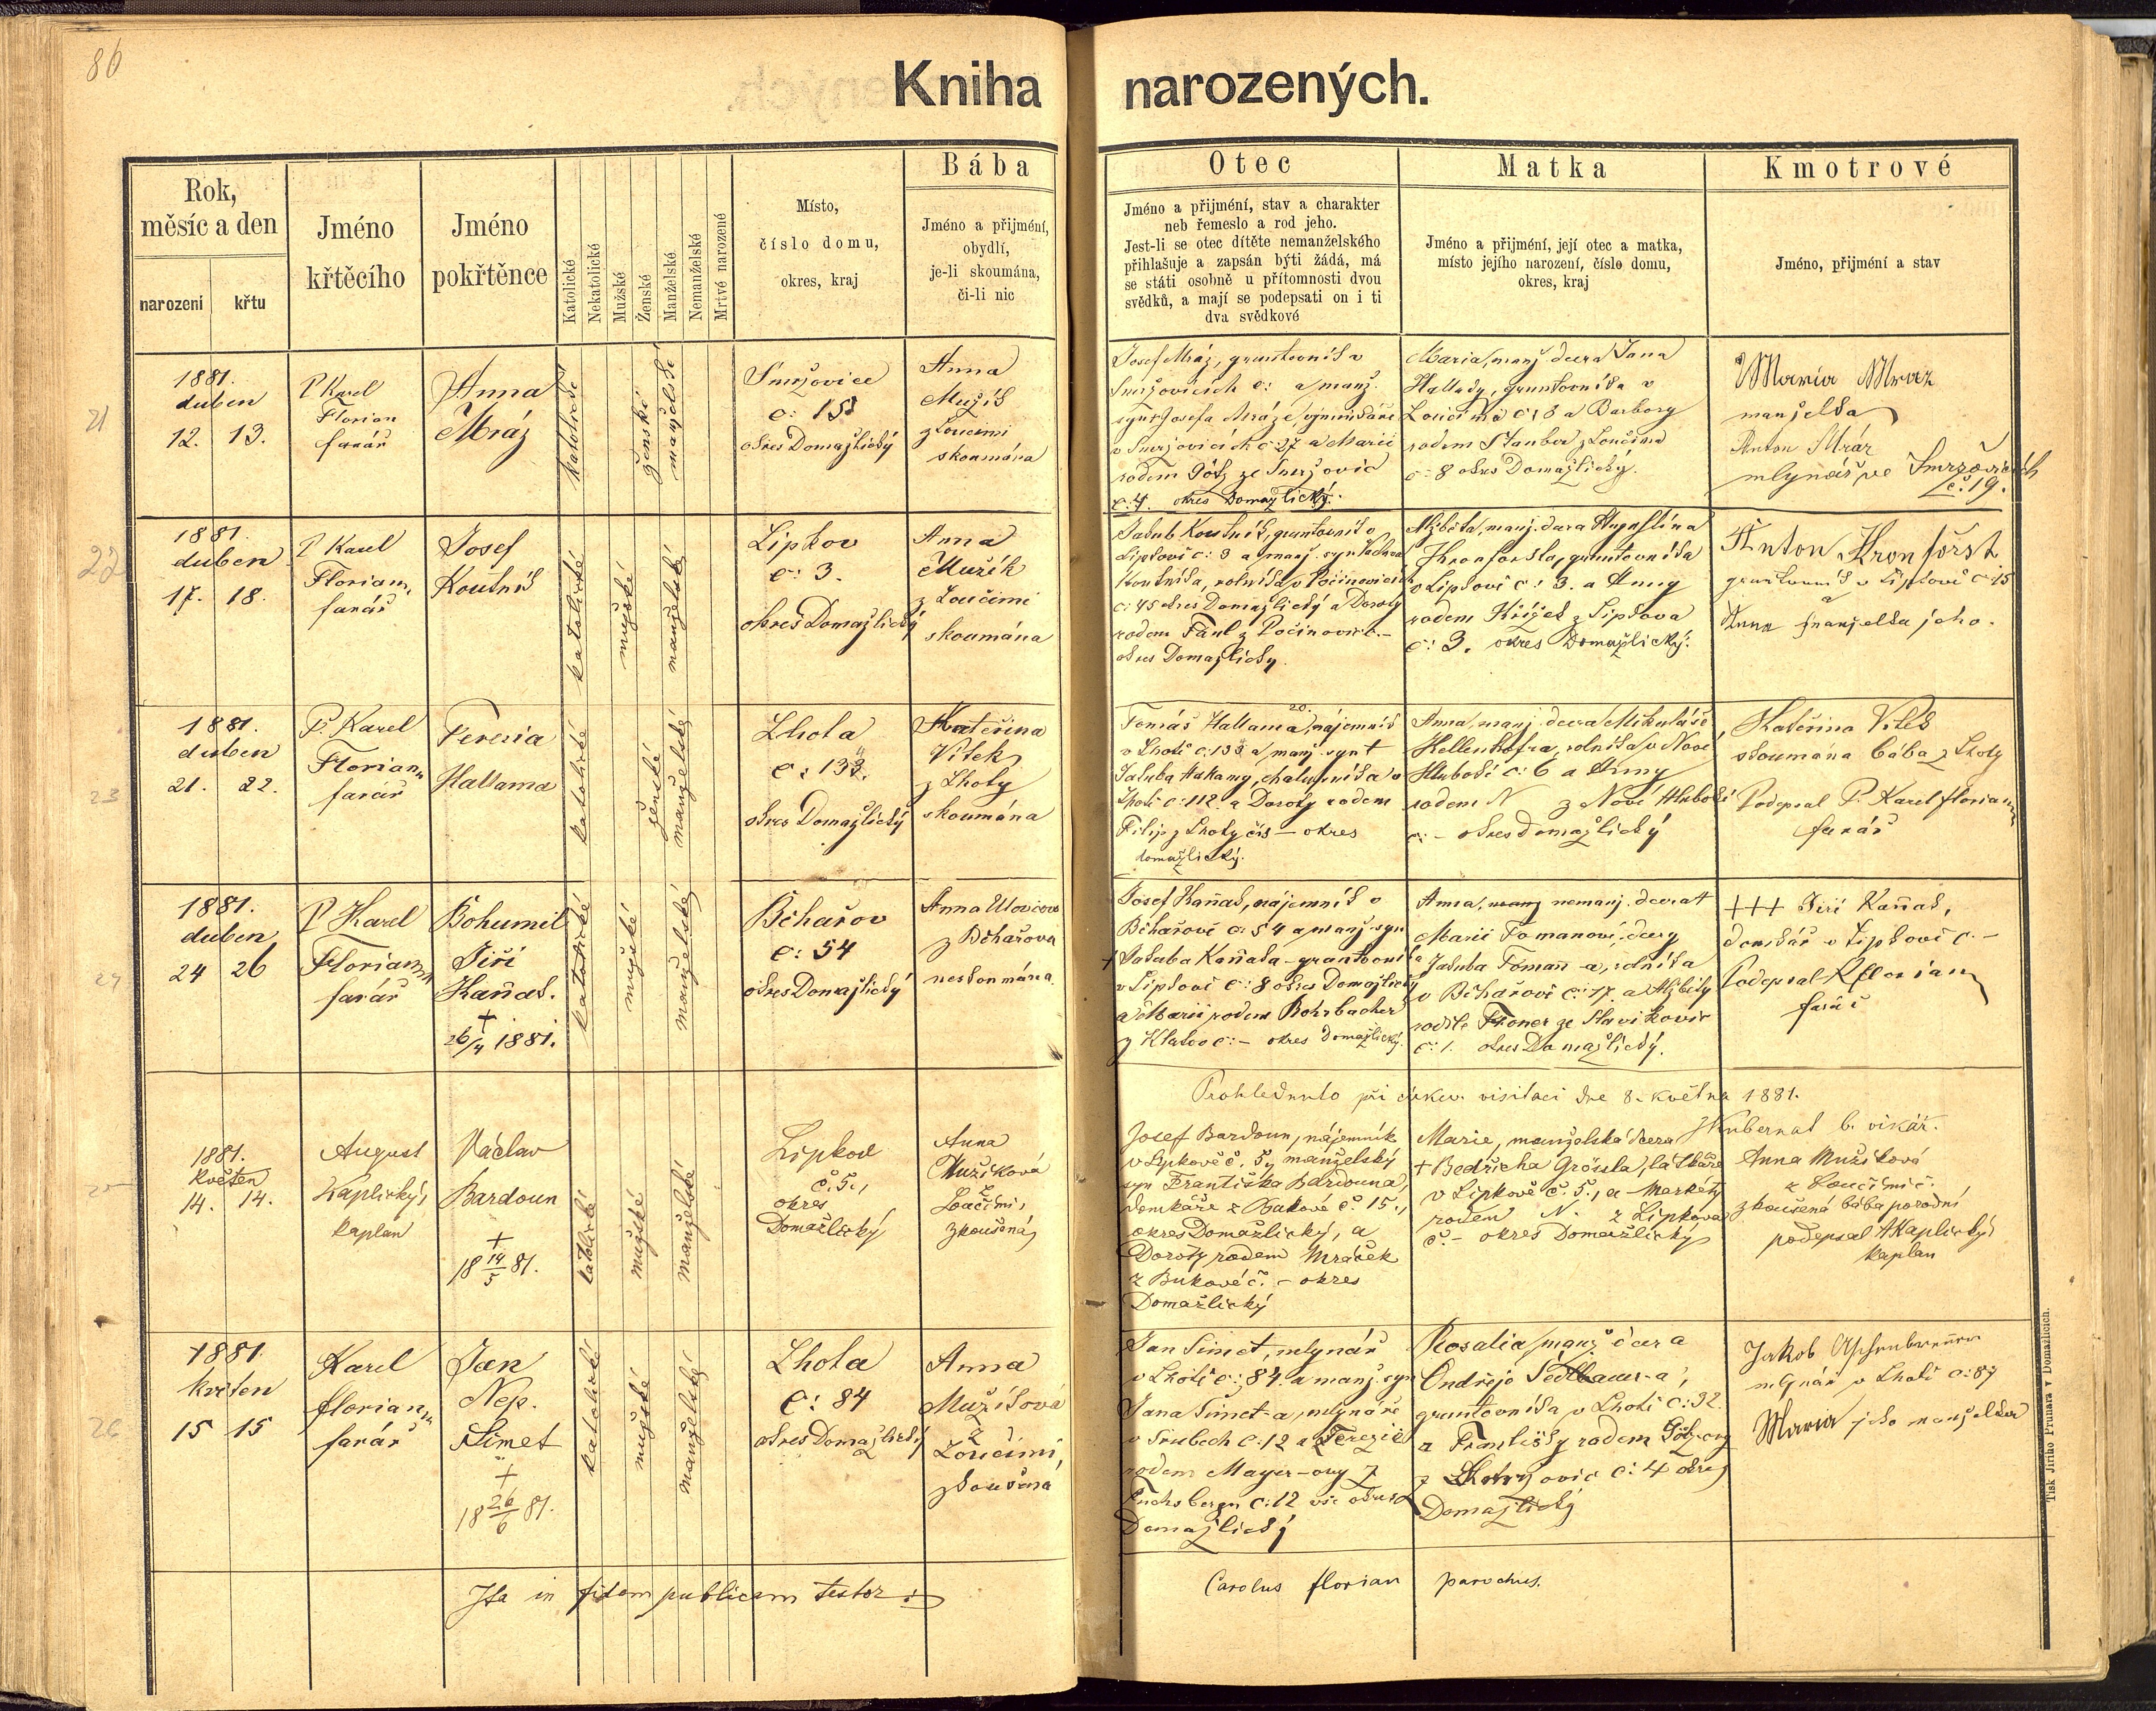 86
Kniha narozených.
Rok,
měsíc a den
narození
křtu
Jméno
křtěcího
Jméno
pokřtěnce
Katolické
Nekatolické
Mužské
Ženské
Manželské
Nemanželské
Mrtvé narozené
Místo,
číslo domu,
okres, kraj
Bába
Jméno a přijmení,
obydlí,
je-li skoumána,
či-li nic
Otec
Jméno a přijmení, stav a charakter
neb řemeslo a rod jeho.
Jest-li se otec dítěte nemanželského
přihlašuje a zapsán býti žádá, má
se státi osobně u přítomnosti dvou
svědků, a mají se podepsati on i ti
dva svědkové
Matka
Jméno a přijmení, její otec a matka,
místo jejího narození, číslo domu,
okres, kraj
Kmotrové
Jméno, přijmení a stav
21
1881.
duben
12. 13.
P Karel
Florian
farář
Anna
Mráz
katolické
ženské
manželské
Smržovice
č: 15
okres Domažlický
Anna
Mužík
z Loučimi
skoumána
Josef Mráz, gruntovník v
Smržovicích č: a manž.
syn Josefa Mráze,
v Smržovicích č: 27 a Marie
rodem Götz ze Smržovic
č. 4. okres Domažlický.
Maria, manž. dcera Jana
Hallady, gruntovníka v
Loučimě č: 8 a Barbory
rodem Stauber z Loučimě
č: 8 okres Domažlický.
Maria Mraz
manželka
Anton Mráz
mlynář ve Smržovicích
č. 19.
22
1881.
duben
17. 18.
P Karel
Florian,
farář
Josef
Koutník
katolické
mužské
manželské
Lipkov
č: 3.
okres Domažlický
Anna
Mužík
z Loučimi
skoumána
Jakub Koutník, gruntovník v
Lipkově č: 3 a manž. syn
Koutníka, rolníka v Počinovicích
č: 45 okres Domažlický a Doroty
rodem Paul z Počinovic č. –
okres Domažlický.
Alžběta, manž. dcera Augustina
Kronforsta, gruntovníka
v Lipkově č: 3. a Anny
rodem Křížek z Lipkova
č: 3. okres Domažlický.
Anton Kronförst
gruntovník v Lipkově č. 15
a
Anna manželka jeho.
23
1881.
duben
21. 22.
P. Karel
Florian
farář
Teresia
Hallama
katolické
ženské
manželské
Lhota
č: 133.
okres Domažlický
Kateřina
Vítek
z Lhoty
skoumána
Tomáš Hallama, nájemník
v Lhotě č: 133 a manž. syn †
Jakuba Halamy, chalupníka v
Lhotě č: 112 a Doroty rodem
Filip z Lhoty čís – okres
domažlický.
Anna, manž. dcera Mikuláše
Hellenhofra, rolníka v Nové
Hluboké č: 6 a Anny
rodem N z Nové Hluboké
č: – okres domažlický
Kateřina Vitek
skoumána bába z Lhoty
Podepsal P. Karel Florian
farář
24
1881.
duben
24 26
P Karel
Florian
farář
Bohumil
Jiří
Kaňak.
†
26/4 1881.
katolické
mužské
manželské
Běhařov
č: 54
okres Domažlický
Anna
z Běhařova
neskoumána
Josef Kaňak, nájemník v
Běhařově č: 54 a manž. syn
† Jakuba Kaňaka – gruntovníka
v Lipkově č: 8 okres Domažlický
a Marie rodem Rohrbacher
z Klatov č: – okres domažlický.
Anna, manž nemanž. dcera †
Marie Tomanové, dcery
Jakuba Toman-a, rolníka
v Běhařově č: 17. a Alžběty
rodilé Troner ze Slavikovic
č: 1. okres Domažlický.
+++ Jiří Kaňák,
domkář v Lipkově č. –
Podepsal K Florian
farář
Prohlednuto při církev. visitaci dne 8. května 1881.
JKubernat b. vikář.
25
1881.
Květen
14. 14.
August
Kaplický,
kaplan
Václav
Bardoun
†
18 14/5 81.
katolické
mužské
manželské
Lipkov
č. 5.,
okres
Domažlický
Anna
Mužíková
z
Loučimi,
zkoušená
Josef Bardoun, nájemník
v Lipkově č. 5, manželský
syn Františka Bardouna,
domkáře z Bukové č. 15.,
okres Domažlický, a
Doroty rodem Mraček
z Bukové č. – okres
Domažlický
Marie, manželská dcera
† Bedřicha Grössla, látkáře
v Lipkově č. 5., a Markéty
rodem N. z Lipkova
č. – okres Domažlický
Anna Mužíková
z Loučimě.
zkoušená bába porodní
podepsal AKaplický
kaplan
26
1881
květen
15 15
Karel
florian
farář
Jan
Nep.
Šimet
†
18 26/6 81.
katolické
mužské
manželské
Lhota
č: 84
okres Domažlický
Anna
Mužíková
z
Loučimi,
zkoušená
Jan Šimet, mlynář
v Lhotě č: 84. a manž. syn
Jana Šimet-a, mlynáře
v Srubech č: 12 a Terezie
rodem Mayer-ovy z
Fuchsbergu č: 12 vše okres
Domažlický
Rosalia, manž. dcera
Ondřeje Sedlbauer-a,
gruntovníka v Lhotě č: 32.
a Františky rodem Götz-ovy
z č: 4 okres
Domažlický
Jakob Aschenbrenner
mlynář v Lhotě č: 87
Maria jeho manželka
Ita in fidem publicam testor:
Carolus florian parochus.
Tisk Jiřího Prunara v Domažlicích.